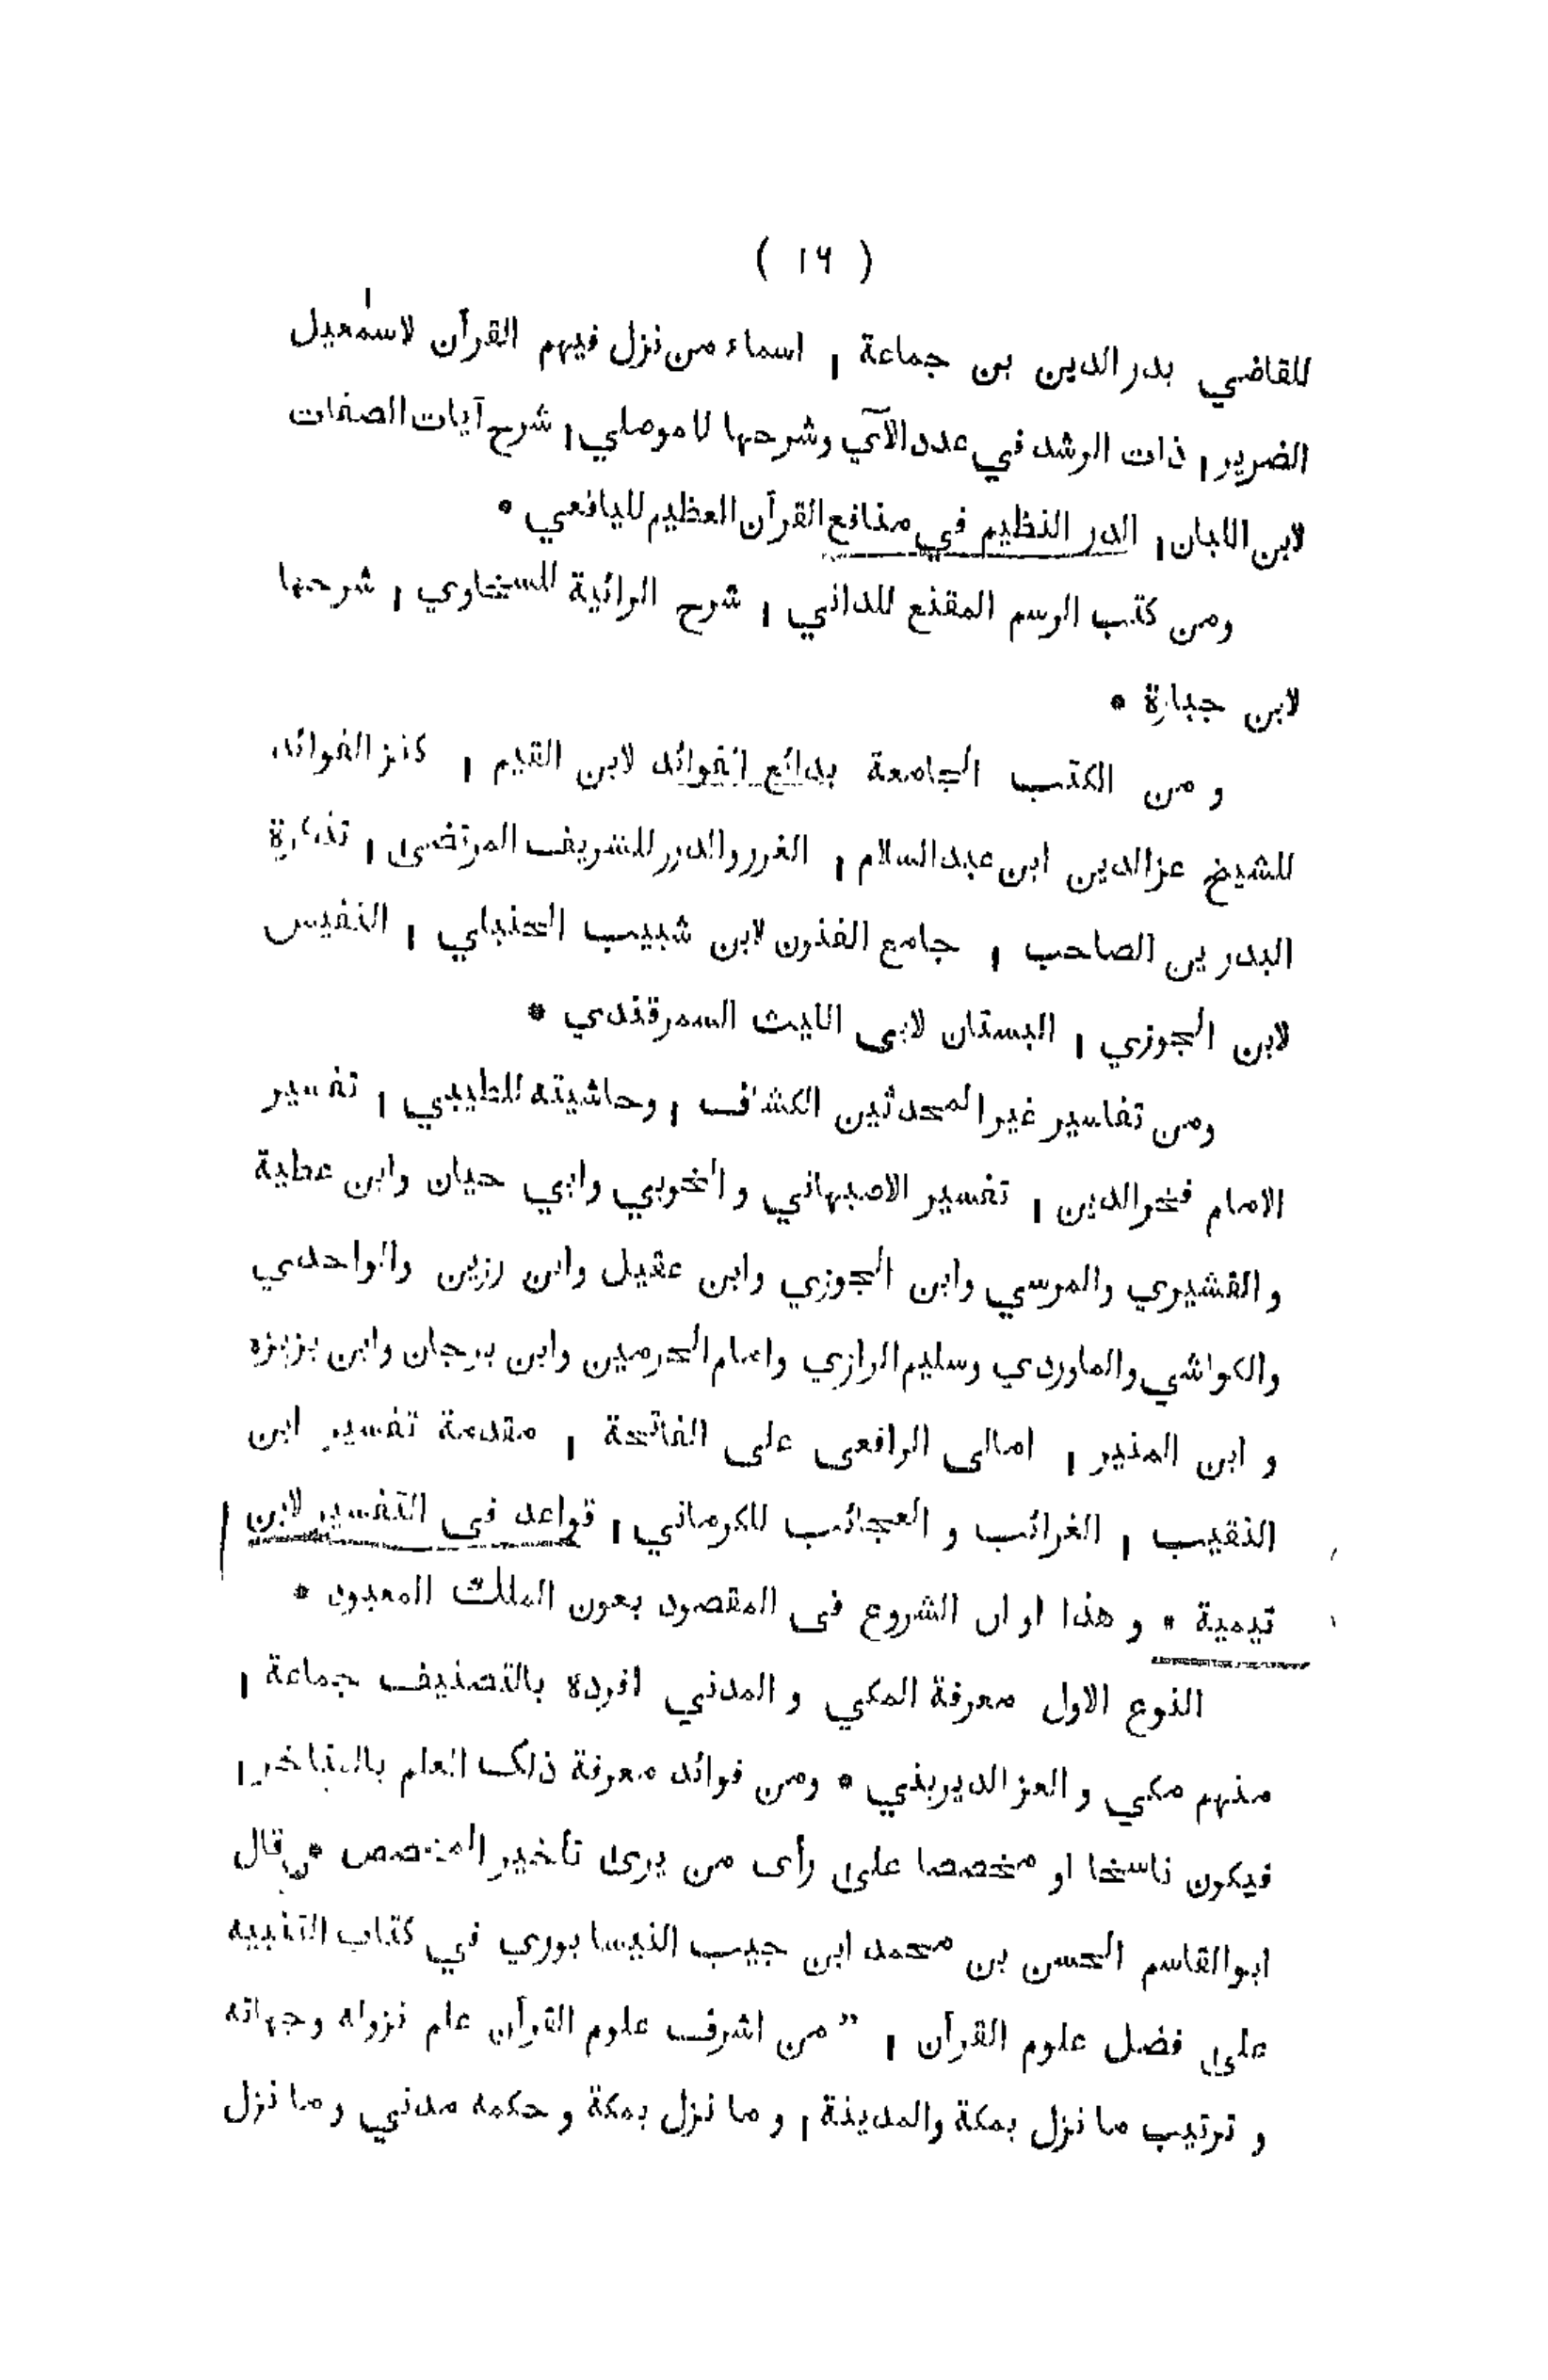 ( ١٦ )
للقاضي بدر الدين بن جماعة ، اسماء من نزل فيهم القرآن لاسمٰعيل
الضرير ، ذات الرشد في عدد الآي وشرحها للموصلي ، شرح آيات الصفات
لابن اللبان ، الدر النظيم في منافع القرآن العظيم لليافعي *
ومن كتب الرسم المقنع للداني ، شرح الرائية للسخاوي ، شرحها
لابن جبارة *
و من الكتب الجامعة بدائع الفوائد لابن القيم ، كنز الفوائد
للشيخ عزالدين ابن عبد السلام ، الغرر والدرر للشريف المرتضى ، تذكرة
البدر بن الصاحب ، جامع الفنون لابن شبيب الحنبلي ، النفيس
لابن الجوزي ، البستان لابى الليث السمرقندي *
ومن تفاسير غير المحدثين الكشاف ، وحاشيته للطيبي ، تفسير
الامام فخرالدين ، تفسير الاصبهاني و الخوبي وابي حيان وابن عطية
و القشيري والمرسي وابن الجوزي وابن عقيل وابن رزين والواحدي
والكواشي والماوردي وسليم الرازي وامام الحرمين وابن برجان وابن بزيزه
و ابن المنير ، امالى الرافعى على الفاتحة ، مقدمة تفسير ابن
النقيب ، الغرائب و العجائب للكرماني ، قواعد فى التفسير لابن
تيمية * و هذا اوان الشروع فى المقصود بعون الملك المعبود *
النوع الاول معرفة المكي و المدني افرده بالتصنيف جماعة ،
منهم مكي و العز الديريني * ومن فوائد معرفة ذلك العلم بالمتاخر ،
فيكون ناسخا او مخصصا على رأى من يرى تأخير المخصص * قال
ابو القاسم الحسن بن محمد ابن حبيب النيسابوري في كتاب التنبيه
على فضل علوم القرآن ، ” من اشرف علوم القرآن علم نزوله وجهاته
و ترتيب ما نزل بمكة والمدينة ، و ما نزل بمكة و حكمه مدني وما نزل